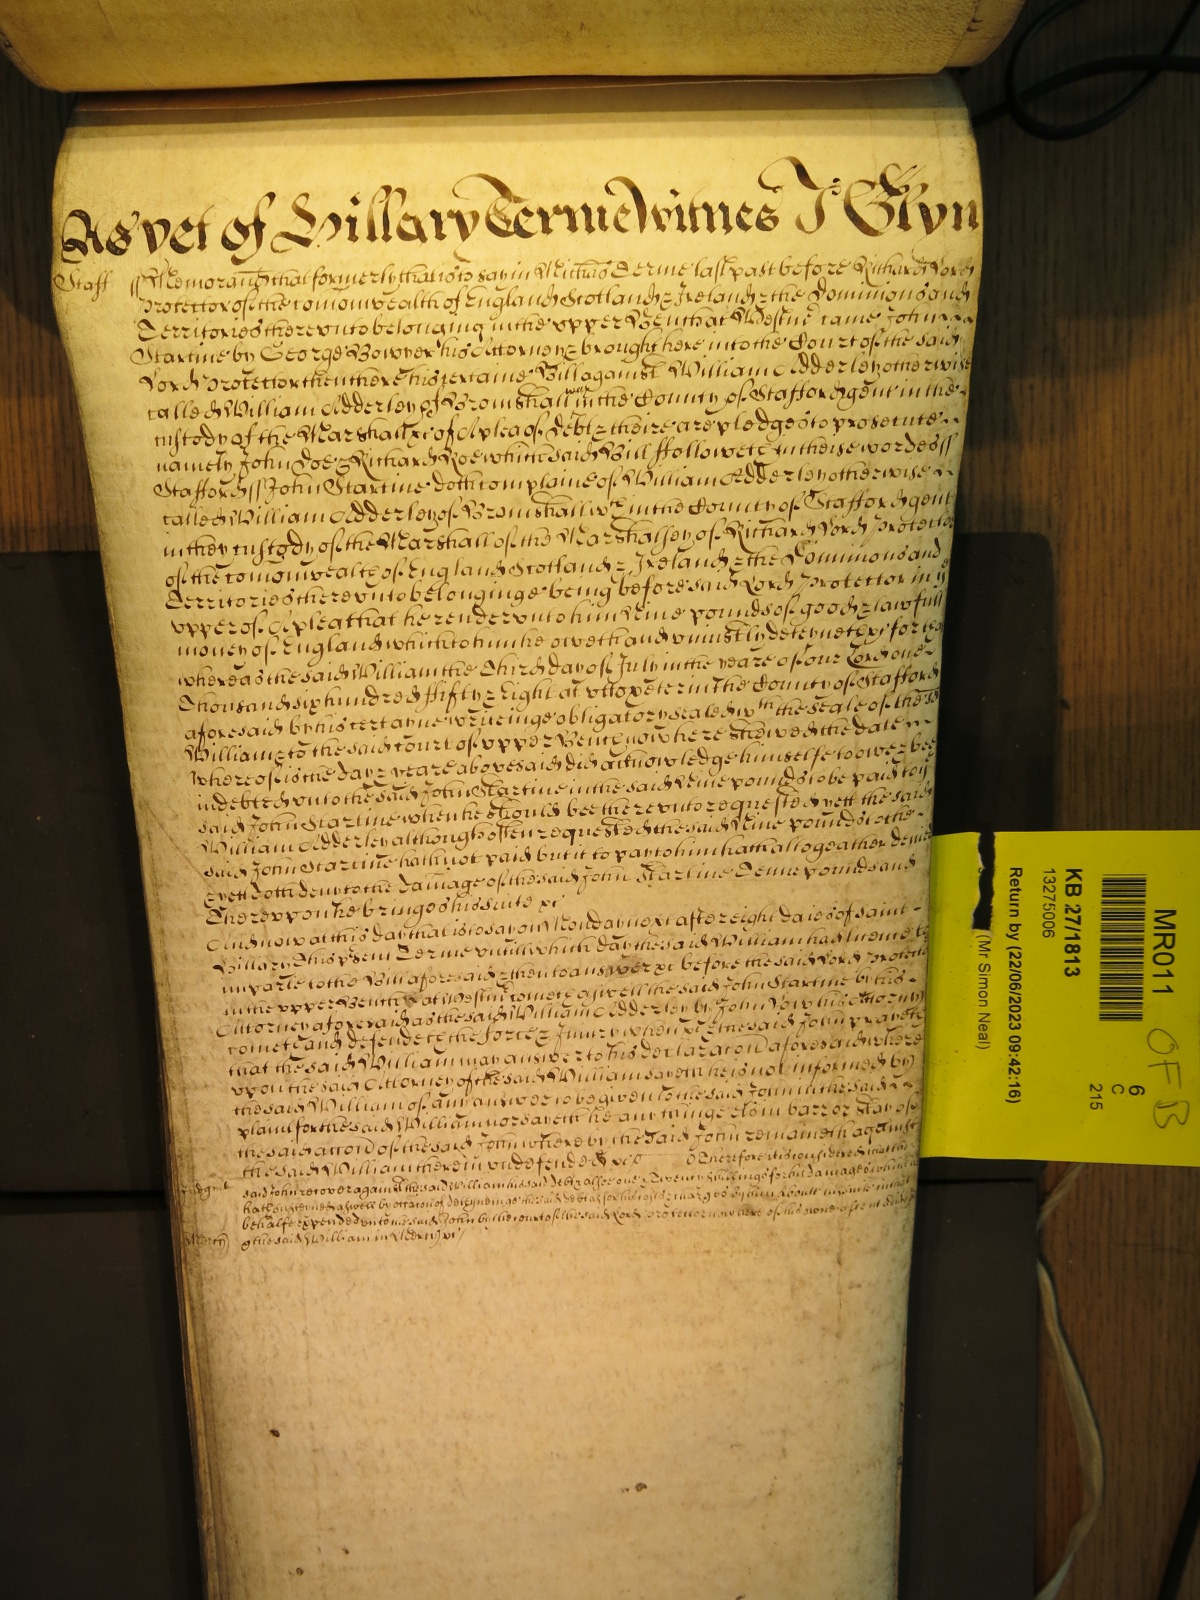 As yet of Hillary Terme Witnes Jo Glyn
Staff ss Memorand that formerly that is to say in Michis Terme last past before Richard Lord
Protector of the comonwealth of England Scotland & Ireland & the Dominions and
Territories thereunto belonging in the upper Bench at Westmr came John
Startine by George Bowyer his Attorney & brought here into the Court of the said
Lord Protector then there his certaine Bill against William Adderley otherwise
called William Adderley of Bromshall wth in the County of Stafford gent in the
custody of the Marshall &c of A plea of Debt & there are pledges to prosecute
namely John Doe & Richard Roe which said Bill followeth in theise wordes ss
Stafford ss John Startine doth complaine of William Adderley otherwise
called William Adderley of Bromshall wth in the County of Stafford gent
in they custody of the Marshall of the Marshalsey of Richard Lord Protector
of the comonwealth of England Scotland & Ireland & the Dominions and
Territories thereunto belonginge being before said Lord Protector in ye
upper of A plea that he render unto him Nine pounds of good & lawfull
money of England which to him he oweth and uniustly deteyneth &c for that
whereas the said William the Third day of July in the yeare of our Lord one
Thousand six hundred fifty & Eight at Uttoxeter in the County of Stafford
aforesaid by his certayne writeinge obligatory sealed wth the seale of the sd
William & to the said court of upper Bench now here shewed the date
whereof is the day & yeare abovesaid did acknowledge himselfe to owe & bee
indebted unto the said John Startine in the said Nine pounds to be paid to ye
said John Startine when he should bee thereunto requested yett the said
William Adderley although often requested the said Nine pounds to the
said John Startine hath not paid but it to pay to him hath altogeather denied
& yett doth deny to the damage of the said John Startine Tenne pounds and
Thereupon he brings his suite &c
And now at this day that is to say on Monday next after eight daies of saint
Hillary This psent Terme untill which day the said William had licence to
imparle to the Bill aforesaid & then to answer &c before the said Lord Protector
in the upper Bench at Westmr cometh aswell the said John Startine by his
Attorney aforesaid as the said William Adderley by John his Attorny
cometh and defendeth the force & Iniury when &c & the said John prayeth
that the said William may answer to his declaracon aforesaid where
upon the said Attorney of the said William sayeth he is not informed by
the said William of any answer to be given to the said John in the said
plaint for the said William nor sayeth he any thinge els in barr or stay of
the said accon of the said John whereby the said John remaineth against
the said William therein undefended &c Therefore it is considered that the
Judgmt said John recover against the said William his said debt & alsoe Twenty shillings for his damages which he
hath susteyned aswell by occasion of deteyneinge the said debt as for his costes & charges by him about his suite in that
behalfe expended unto the said John by the court of the said Lord Protector now here of his owne assent
Mercy & the said William in Mercy &c
MR011
OFB
6
C
215
KB 27/1813
13275006
Return by (22/06/2023 09:42:16)
(Mr Simon Neal)